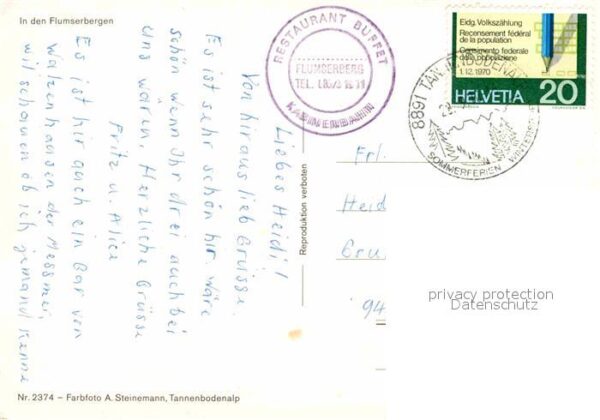 In den Flumserbergen
Liebes Heidi!
Von hir aus lieb Grüsse.
Es ist sehr schön hir wäre
schön wenn Ihr drei auch bei
uns wären. Herzliche Grüsse
Fritz u. Alice
Es ist hir auch ein Bar von
Watzenhausen der Messmei,
wil schauen ob ich jemand kenne
Nr. 2374 – Farbfoto A. Steinemann, Tannenbodenalp
Reproduktion verboten
RESTAURANT BUFFET
FLUMSERBERG
TEL.
KABINENBAHN
Eidg. Volkszählung
Recensement fédéral
de la population
Censimento federale
della popolazione
1.12.1970
HELVETIA 20
8891 TANNENBODENALP
SOMMERFERIEN WINTERSPORT
Frl.
Heid
Gru
94
privacy protection
Datenschutz